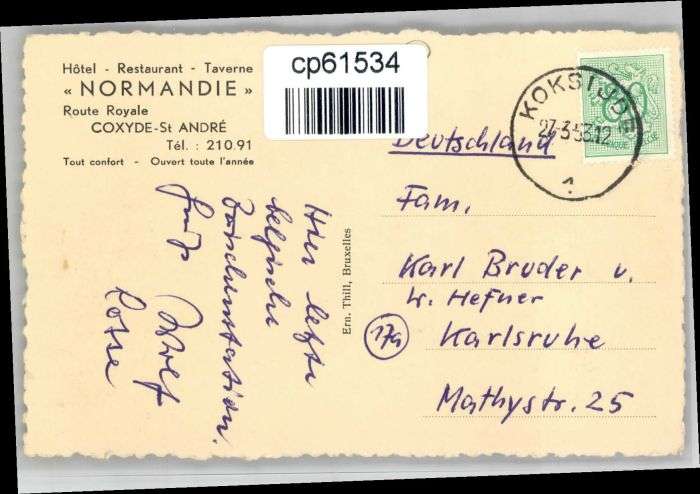 Hôtel - Restaurant - Taverne
« NORMANDIE »
Route Royale
COXYDE-St ANDRÉ
Tél. : 210.91
Tout confort - Ouvert toute l'année
cp61534
KOKSIJDE
27-3-53.12
1
Deutschland
Fam.
Karl Bruder u.
W. Hefner
17a
Karlsruhe
Mathystr. 25
Ern. Thill, Bruxelles
Hier letzte
belgische
Zwischenstation.
Gruß